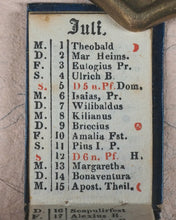 Juli.
M. 1 Theobald
D. 2 Mar Heims.
F. 3 Eulogius Pr.
S. 4 Ulrich B.
S. 5 D 5 n. Pf. Dom.
M. 6 Isaias, Pr.
D. 7 Wilibaldus
M. 8 Kilianus
D. 9 Briccius
F. 10 Amalia Fst.
S. 11 Pius I. P.
S 12 D 6 n. Pf. H.
M. 13 Margaretha
D. 14 Bonaventura
M. 15 Apost. Theil.
D. 16 Scapulierfest
F. 17 Alexius B.